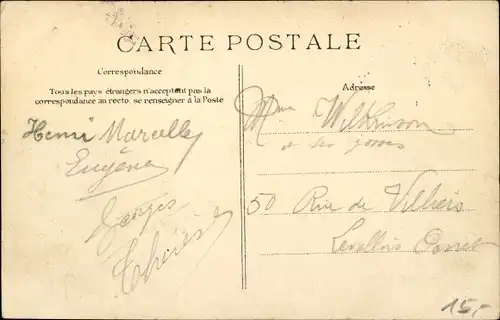 CARTE POSTALE
Correspondance
Tous les pays étrangers n'acceptent pas la
correspondance au recto, se renseigner à la Poste
Henri Marcelle
Eugène
Georges
Thérèse
Adresse
Mme Wilkinson
50 Rue de Villiers
Levallois Perret
15,-